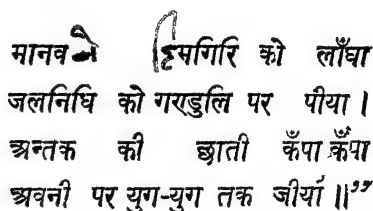 मानव ने हिमगिरि को लाँघा
जलनिधि को गण्डुलि पर पीया ।
अन्तक की छाती कँपा कँपा
अवनी पर युग-युग तक जीया ॥”